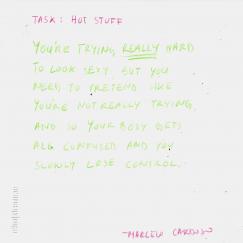 TASK: HOT STUFF
YOU'RE TRYING REALLY HARD
TO LOOK SEXY, BUT YOU
NEED TO PRETEND LIKE
YOU'RE NOT REALLY TRYING,
AND SO YOUR BODY GETS
ALL CONFUSED AND YOU
SLOWLY LOSE CONTROL.